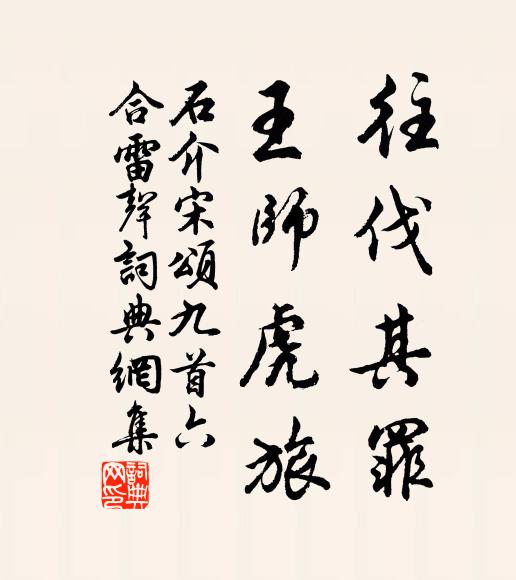 往伐其罪
王師虎旅
石介宋頌九首六
合雷聲詞典網集
詞典
网印